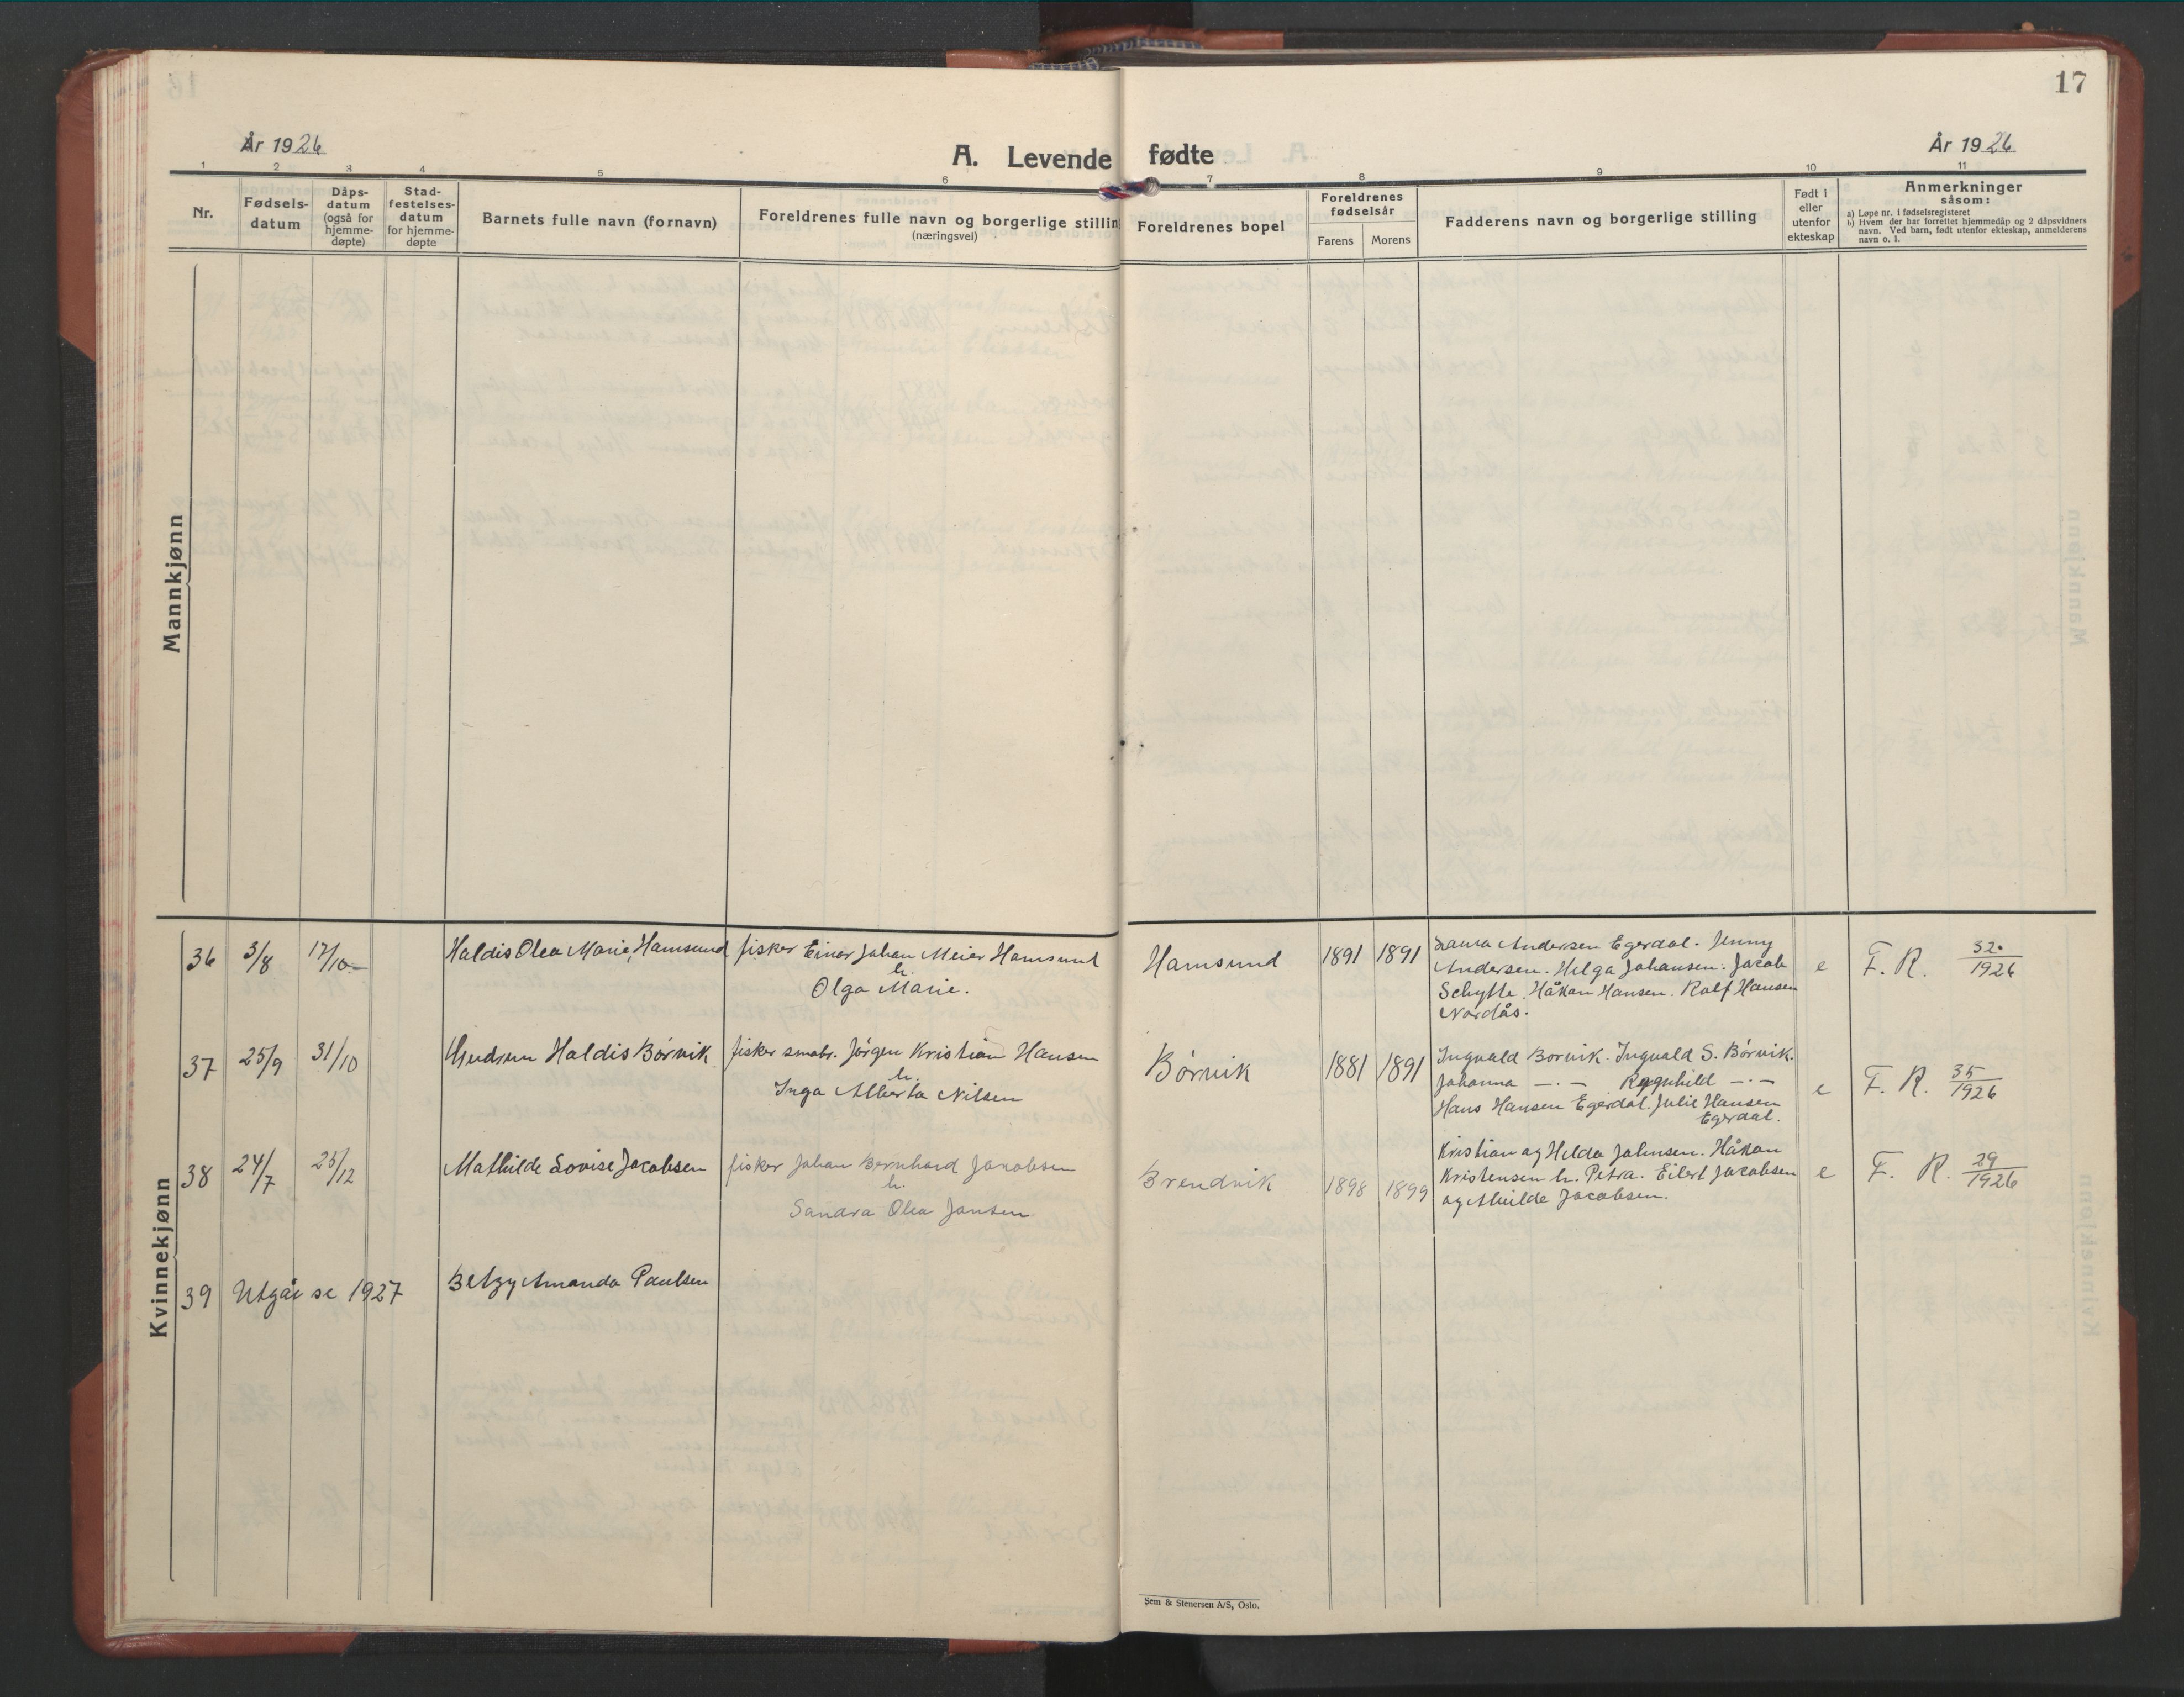 17
År 1926
A. Levende fødte
År 1926
1 2 3 4 5 6 7 8 9 10 11
Nr.
Fødsels-
datum
Dåps-
datum
(også for
hjemme-
døpte)
Stad-
festelses-
datum
for hjemme-
døpte
Barnets fulle navn (fornavn)
Foreldrenes fulle navn og borgerlige stillin
(næringsvei)
Foreldrenes bopel
Foreldrenes
fødselsår
Farens Morens
Fadderens navn og borgerlige stilling
Født i
eller
utenfor
ekteskap
Anmerkninger
såsom:
a) Løpe nr. i fødselsregisteret
b) Hvem der har forrettet hjemmedåp og 2 dåpsvidners
navn. Ved barn, født utenfor ekteskap, anmelderens
navn o. l.
Mannkjønn
Kvinnekjønn
36 3/8 17/10 Haldis Olea Marie Hamsund
fisker Einar Johan Meier Hamsund
h.
Olga Marie.
Hamsund 1891 1891
Laura Andersen Egerdal. Jenny
Andersen. Helga Johansen. Jacob
Schytte. Håkan Hansen. Rolf Hansen
Nordås.
e F. R. 32/1926
37 25/9 31/10 Gudrun Haldis Börvik
fisker småbr. Jörgen Kristian Hansen
h.
Inga Alberta Nilsen
Börvik 1881 1891
Ingvald Borvik. Ingvald S. Börvik.
Johanna —·— Ragnhild —·—
Hans Hansen Egerdal. Julie Hansen
Egerdal.
e F. R. 35/1926
38 24/7 25/12 Mathilde Lovise Jacobsen
fisker Johan Bernhard Jakobsen
h.
Sandra Olea Jansen
Brendvik 1898 1899
Kristian og Hilda Johnsen. Håkon
Kristensen h. Petra. Eilert Jacobsen
og Jacobsen.
e F. R. 29/1926
39 Utgår se 1927 Betzy Amanda Paulsen
Sem & Stenersen A/S, Oslo.